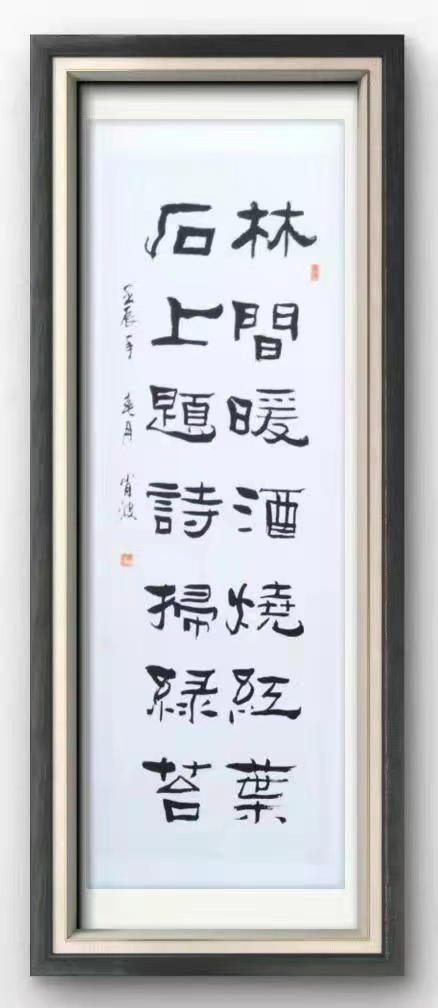 林間暖酒燒紅葉
石上題詩掃緑苔
壬辰年 春月 肖波